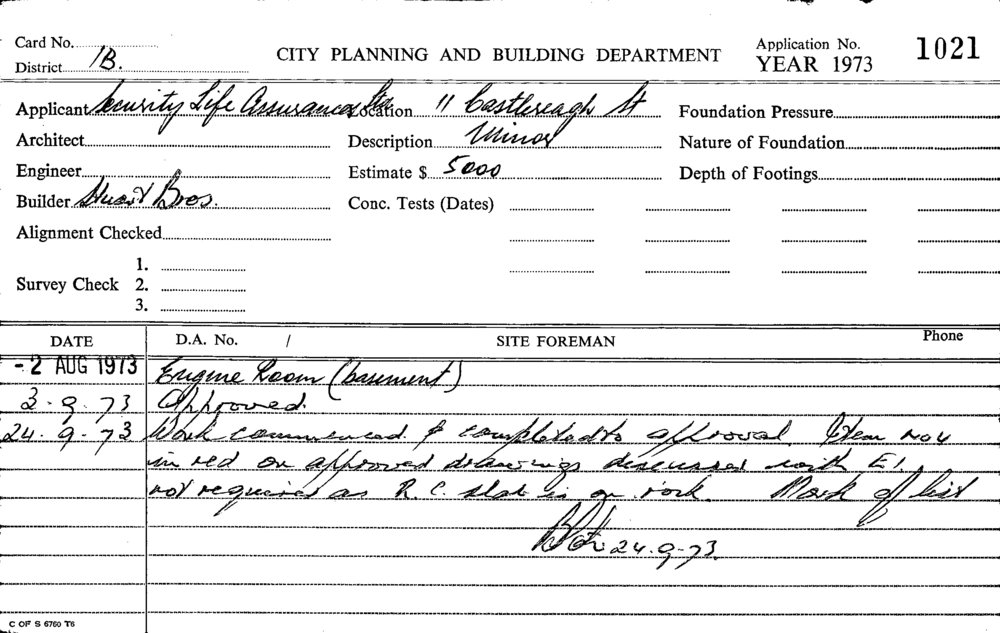 Card No.
CITY PLANNING AND BUILDING DEPARTMENT
Application No. 1021
District 1B.
YEAR 1973
Applicant Security Life Assurance Ltd Location 11 Castlereagh St Foundation Pressure
Architect Description Minor Nature of Foundation
Engineer Estimate $ 5000 Depth of Footings
Builder Stuart Bros. Conc. Tests (Dates)
Alignment Checked
1.
Survey Check 2.
3.
DATE D.A. No. / SITE FOREMAN Phone
- 2 AUG 1973 Engine Room (basement)
3. 9. 73 Approved.
24. 9. 73 Work commenced & completed to approval. Item no 4
in red on approved drawings discussed with E1.
not required as R.C. slab is on rock. Mark of list
24.9.73.
C OF S 6760 T6